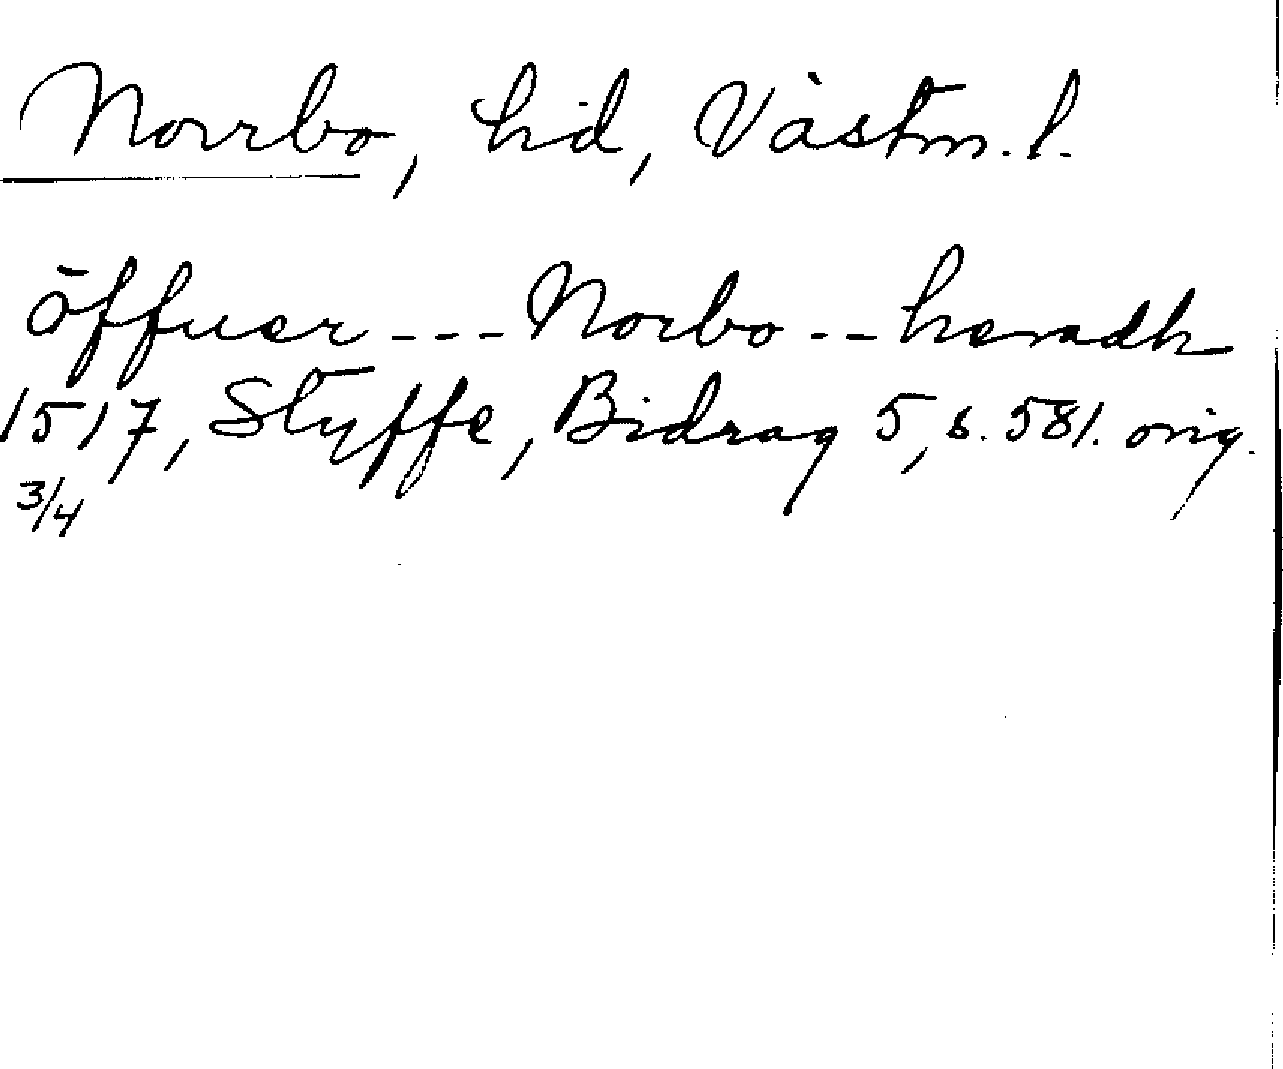 Norrbo, hd, Västm. l.
öffuer --- Norbo -- heradh
1517, Styffe, Bidrag 5, s. 581. orig.
3/4